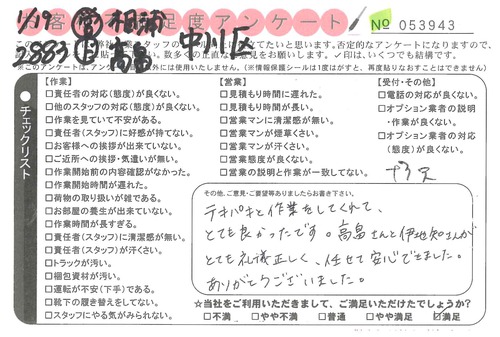 1/19
相浦
中川区
2883
高畠
お客様満足度アンケート
No 053943
作業スタッフの
たいと思います。否定的なアンケートになりますので、
数多くの正直なご意見をお願いします。✓印は、いくつでも結構です。
以外には使用いたしません。(※情報保護シールは1度はがすと、再度貼りなおすことはできません)
チェックリスト
【作業】
□責任者の対応(態度)が良くない。
□他のスタッフの対応(態度)が良くない。
□作業を見ていて不安がある。
□責任者(スタッフ)に好感が持てない。
□お客様への挨拶が出来ていない。
□ご近所への挨拶・気遣いが無い。
□作業開始前の内容確認がなかった。
□作業開始時間が遅れた。
□荷物の取り扱いが雑である。
□お部屋の養生が出来ていない。
□作業時間が長すぎる。
□責任者(スタッフ)に清潔感が無い。
□責任者(スタッフ)が汗くさい。
□トラックが汚い。
□梱包資材が汚い。
□運転が不安(下手)である。
□靴下の履き替えをしてない。
□スタッフにやる気がみられない。
【営業】
□見積もり時間に遅れた。
□見積もり時間が長い。
□営業マンに清潔感が無い。
□営業マンが煙草くさい。
□営業マンが汗くさい。
□営業態度が良くない。
□営業の説明と作業が一致してない。
【受付・その他】
□電話の対応が良くない。
□オプション業者の説明
・作業が良くない。
□オプション業者の対応
(態度)が良くない。
その他、ご意見・ご要望等ありましたらお書き下さい。
テキパキと作業をしてくれて、
とても良かったです。高畠さんと伊地知さんが
とても礼儀正しく、任せて安心できました。
ありがとうございました。
☆当社をご利用いただきまして、ご満足いただけたでしょうか?
□不満 □やや不満 □普通 □やや満足 ☑満足